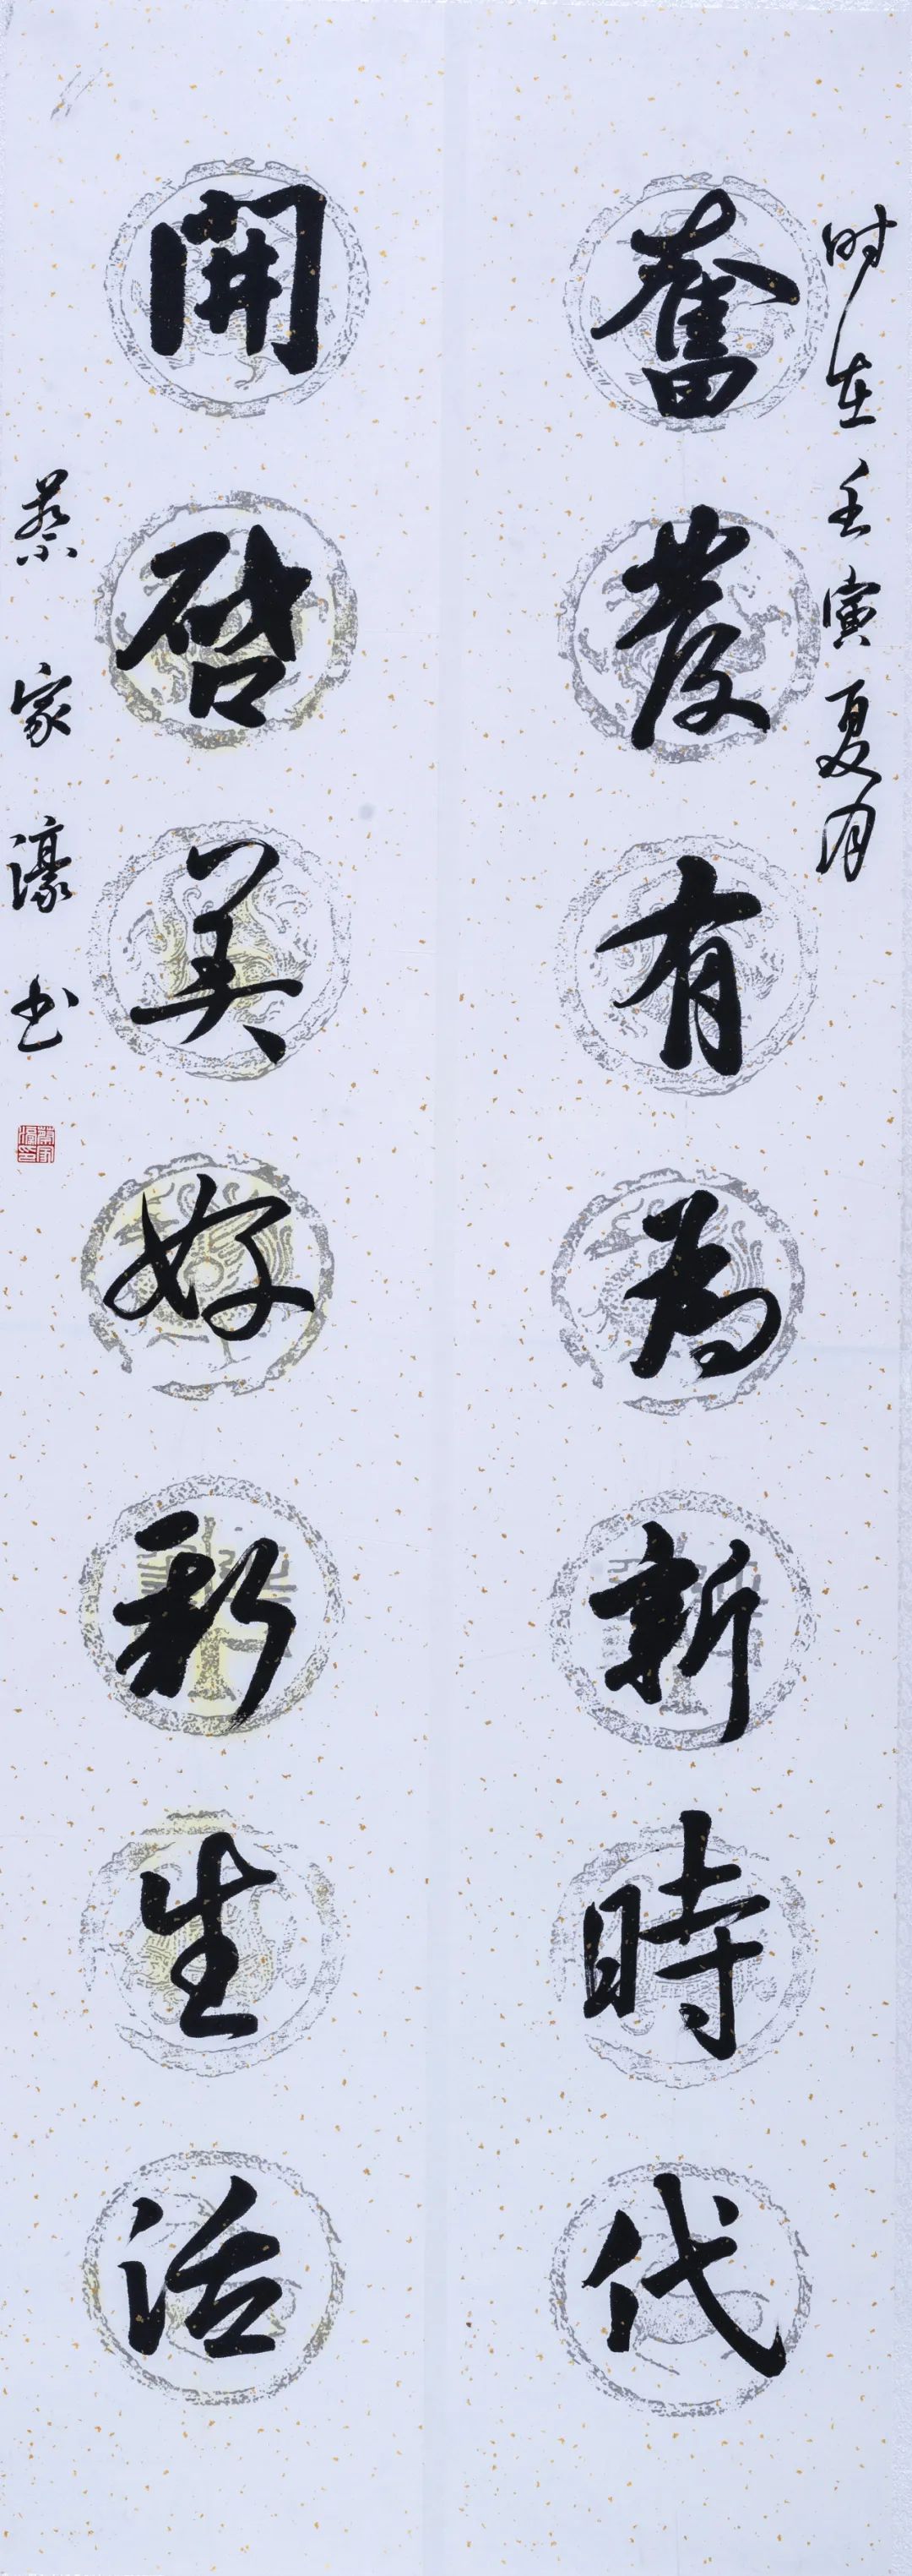 时在壬寅夏月
奮發有為新時代
開啓美好新生活
蔡家濠书